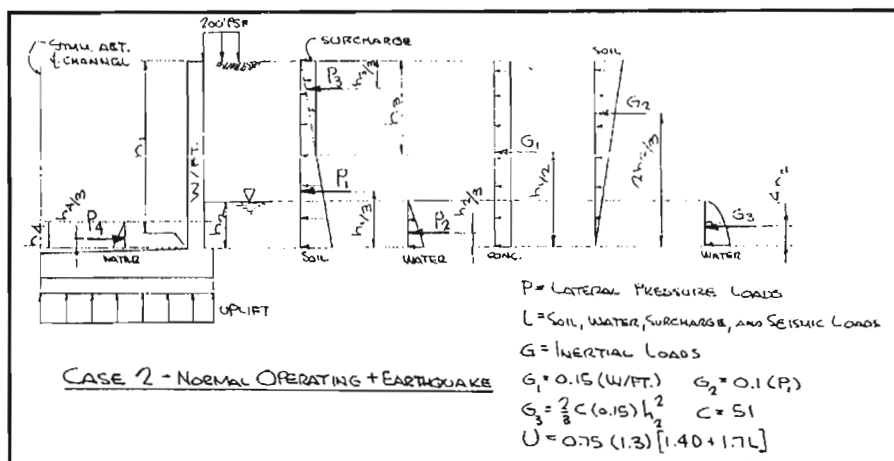 200 PSF
SYMM. ABT.
℄ CHANNEL
SURCHARGE
SOIL
P3
h3/3
h3
G2
G1
W/FT.
P1
h1/3
h2
P2
h2/3
h1/2
G3
h4
h4/3
P4
WATER
SOIL
WATER
CONC.
WATER
UPLIFT
P = LATERAL PRESSURE LOADS
L = SOIL, WATER, SURCHARGE, AND SEISMIC LOADS
G = INERTIAL LOADS
CASE 2 - NORMAL OPERATING + EARTHQUAKE
G1 = 0.15 (W/FT.) G2 = 0.1 (P1)
G3 = 2/3 C (0.15) h2² C = 51
U = 0.75 (1.3) [1.4D + 1.7L]